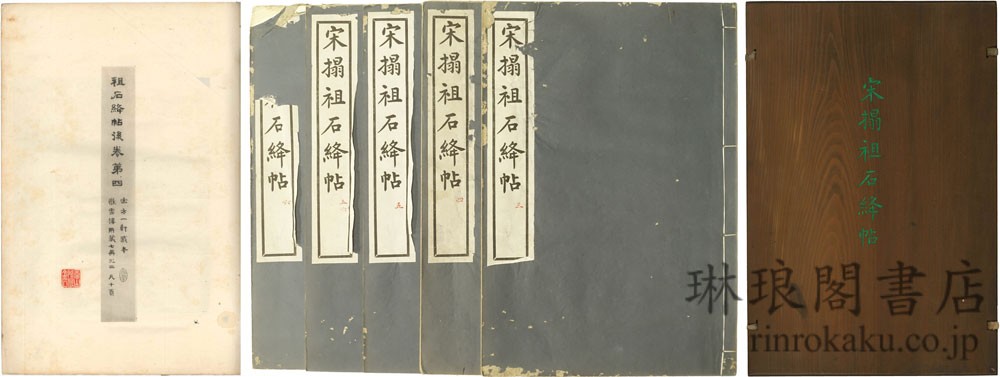 祖石絳帖後卷第四
宋搨祖石絳帖
宋搨祖石絳帖
宋搨祖石絳帖
宋搨祖石絳帖
石絳帖
三
四
五
宋搨祖石絳帖
琳琅閣書店
rinrokaku.co.jp